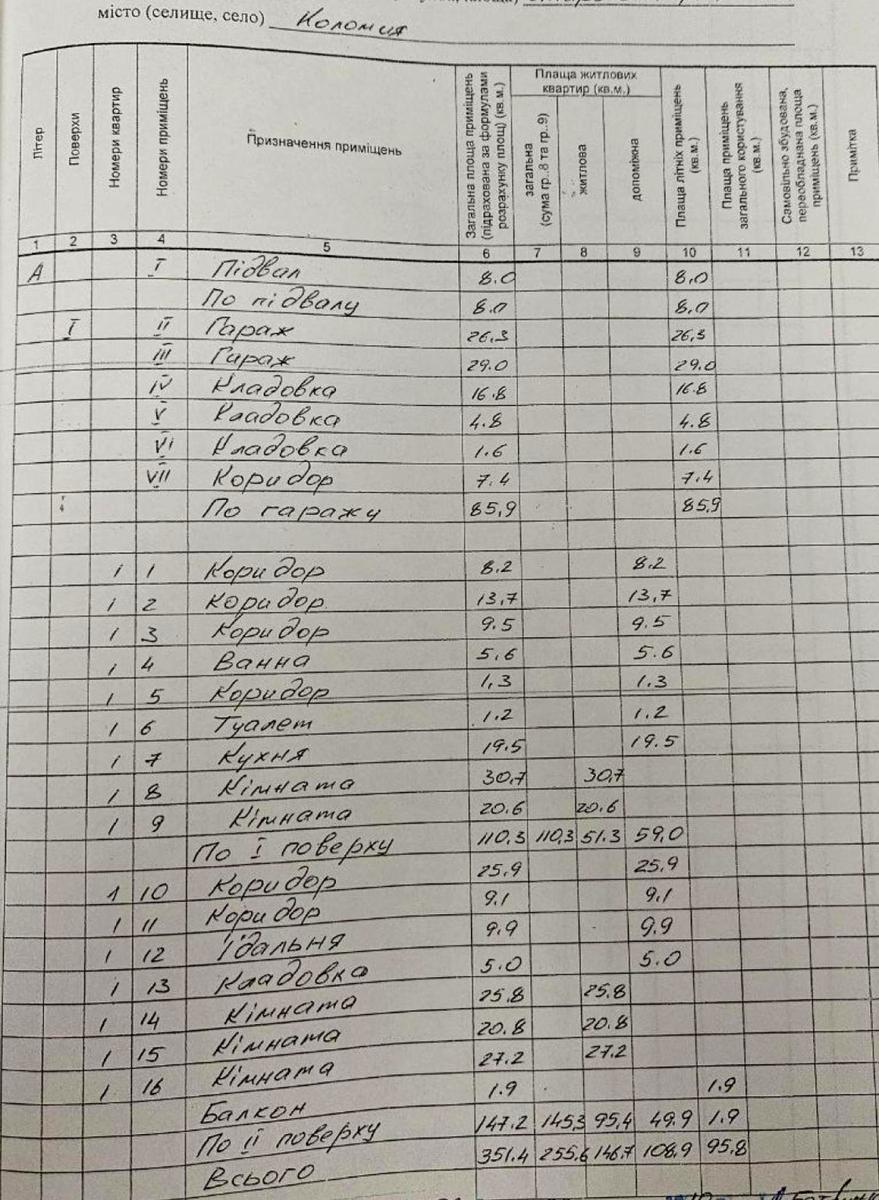 місто (селище, село) Коломия
Літер
Поверхи
Номери квартир
Номери приміщень
Призначення приміщень
Загальна площа приміщень (підрахована за формулами розрахунку площ) (кв.м.)
Плаща житлових квартир (кв.м.)
загальна (сума гр..8 та гр..9)
житлова
допоміжна
Плаща літніх приміщень (кв.м.)
Плаща приміщень загального користування (кв.м.)
Самовільно збудована, переобладнана площа приміщень (кв.м.)
Примітка
1 2 3 4 5 6 7 8 9 10 11 12 13
А I Підвал 8.0 8,0
По підвалу 8.0 8,0
I II Гараж 26,3 26,3
III Гараж 29.0 29.0
IV Кладовка 16.8 16.8
V Кладовка 4.8 4.8
VI Кладовка 1.6 1.6
VII Коридор 7.4 7.4
По гаражу 85,9 85,9
1 1 Коридор 8.2 8.2
1 2 Коридор 13,7 13,7
1 3 Коридор 9.5 9.5
1 4 Ванна 5,6 5.6
1 5 Коридор 1,3 1.3
1 6 Туалет 1.2 1.2
1 7 Кухня 19.5 19.5
1 8 Кімната 30,7 30,7
1 9 Кімната 20.6 20.6
По I поверху 110,3 110,3 51.3 59,0
1 10 Коридор 25,9 25,9
1 11 Коридор 9.1 9.1
1 12 Їдальня 9.9 9.9
1 13 Кладовка 5.0 5.0
1 14 Кімната 25,8 25,8
1 15 Кімната 20.8 20.8
1 16 Кімната 27.2 27.2
Балкон 1.9 1.9
По II поверху 147.2 145,3 95,4 49.9 1.9
Всього 351.4 255,6 146.7 108.9 95,8